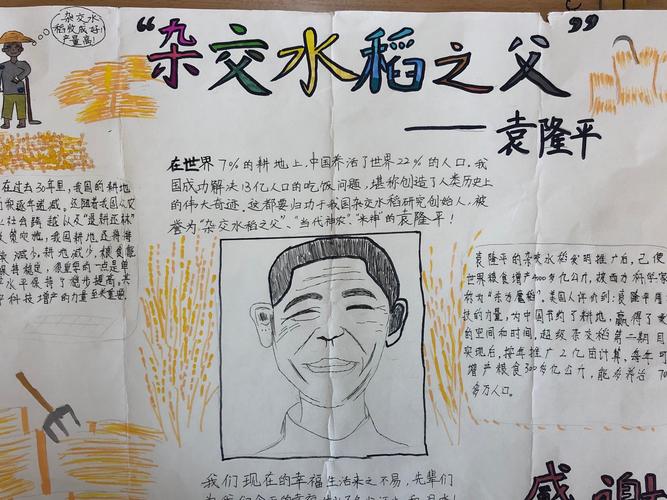 杂交水
稻收成好!
产量高!
“杂交水稻之父”
——袁隆平
在世界7%的耕地上,中国养活了世界22%的人口。我
国成功解决13亿人口的吃饭问题,堪称创造了人类历史上
的伟大奇迹。这都要归功于我国杂交水稻研究创始人,被
誉为“杂交水稻之父”、“当代神农”、“米神”的袁隆平!
在过去30年里,我国的耕地
减少,耕地减少,粮食能
保持稳定,很重要的一点是单
水平保持了稳步提高,其
科技增产的力量至关重要
袁隆平的杂交水稻发明推广后,已使
世界粮食增产400多亿公斤,被西方科学家
称为“东方魔稻”,美国人评价到:袁隆平用
技的力量,为中国节约了耕地,赢得了
的空间和时间,超级杂交稻第二期目
实现后,按年推广2亿亩计算,每年可
增产粮食300多亿公斤,能多养活70
多万人口。
我们现在的幸福生活来之不易,先辈们
感谢